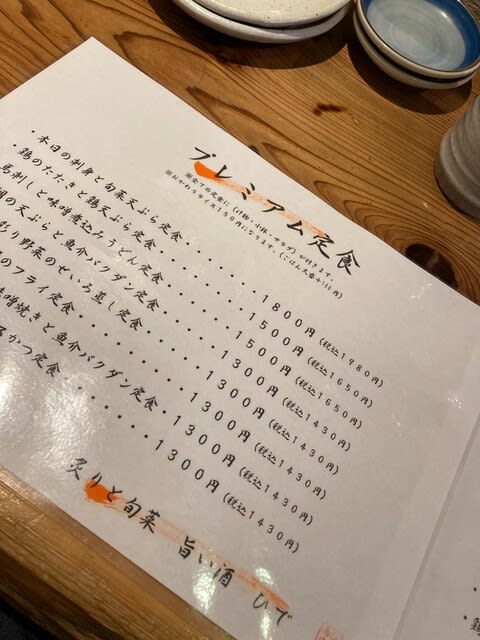 プレミアム定食
※全ての定食に(汁物・小鉢・サラダ)が付きます。
※おかわりライス150円になります。(ごはん大盛+100円)
・本日の刺身と旬菜天ぷら定食・・・・・・・1800円(税込1980円)
・鶏のたたきと鶏天ぷら定食・・・・・・・1500円(税込1650円)
馬刺しと味噌煮込みうどん定食・・・・・・1500円(税込1650円)
の天ぷらと魚介バクダン定食・・・・・・1300円(税込1430円)
彩り野菜のせいろ蒸し定食・・・・・・1300円(税込1430円)
のフライ定食・・・・・・・・1300円(税込1430円)
味噌焼きと魚介バクダン定食・1300円(税込1430円)
かつ定食・・・・・・・1300円(税込1430円)
炙りと旬菜 旨い酒 ひで